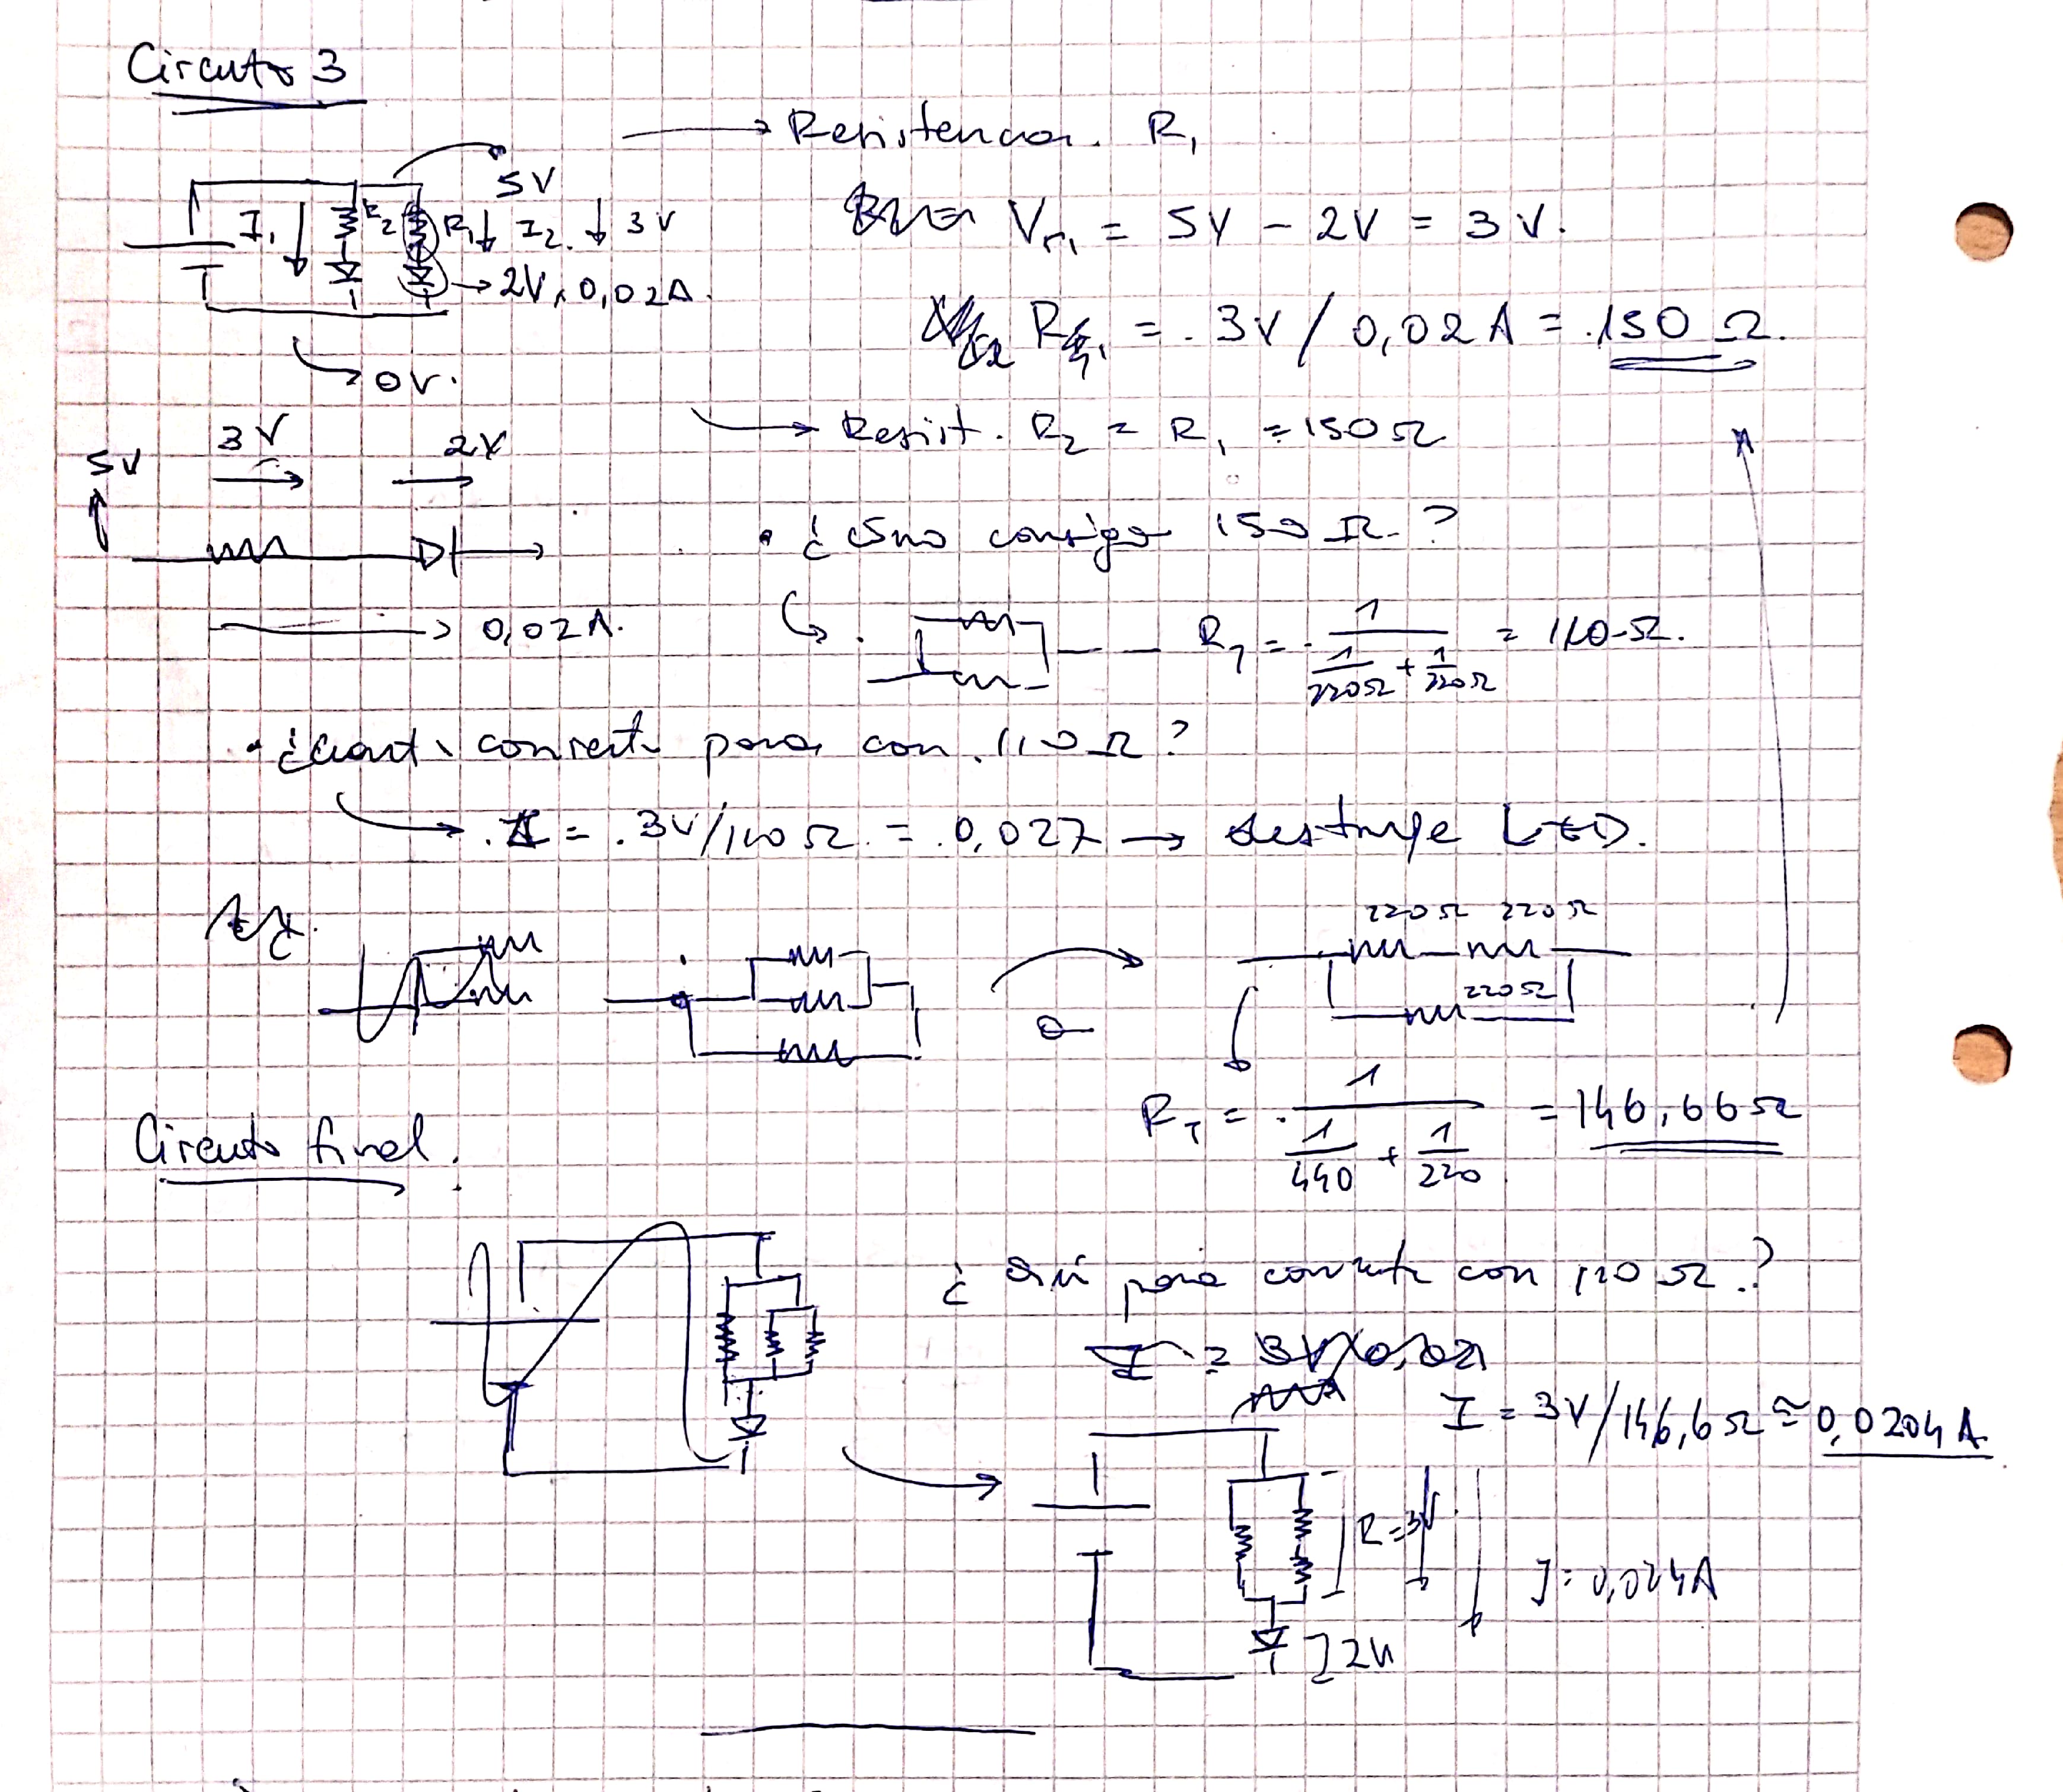 Circuito 3
→ Resistencia. R₁
5V
I₁ R₂ R₁ I₂. 3V
→ 2V, 0,02A.
→ 0V.
Vr₁ = 5V - 2V = 3V.
R₁ = 3V / 0,02A = 150 Ω.
→ Resist. R₂ = R₁ = 150Ω
5V 3V 2V
→ 0,02A.
• ¿ consigo 150 Ω. ?
R_T = 1 / (1/220Ω + 1/220Ω) = 110 Ω.
• ¿cuant corriente pasa con 110Ω?
→ I = 3V/110Ω = 0,027 → destruye LED.
220Ω 220Ω
220Ω
R_T = 1 / (1/440 + 1/220) = 146,66Ω
Circuito final.
¿ pasa corriente con 110Ω?
I = 3V/146,6Ω ≈ 0,0204A
R=3V
I = 0,024A
2V